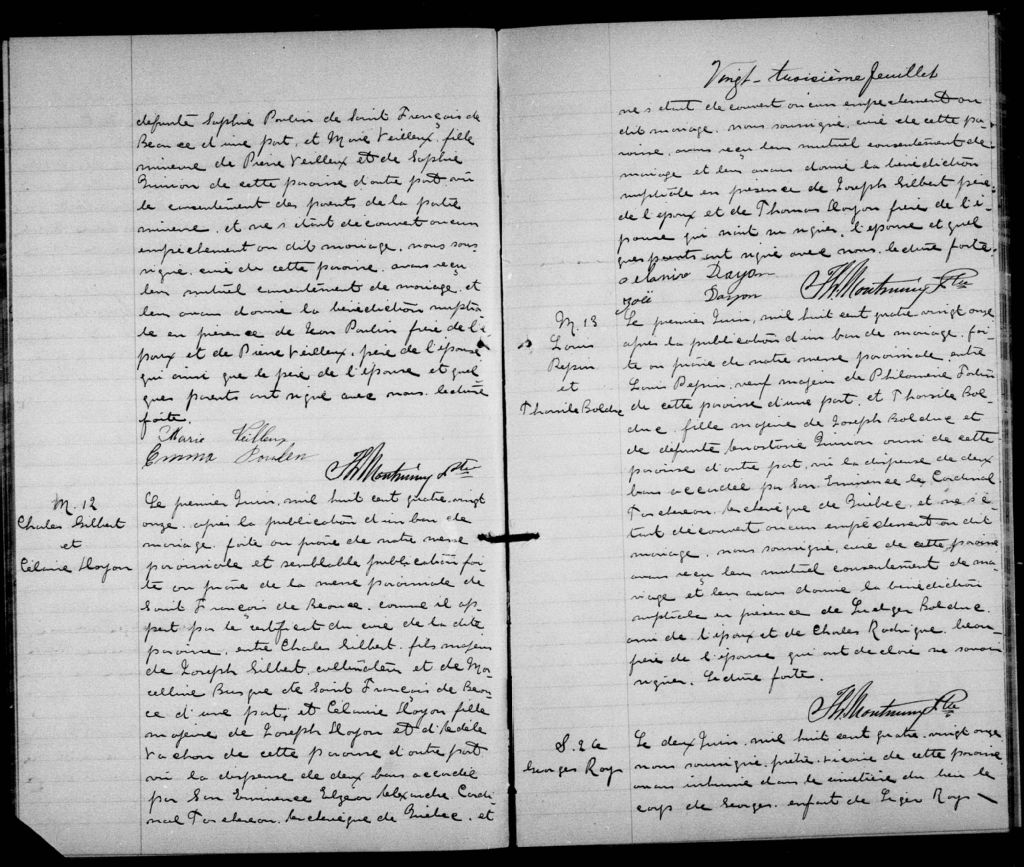 defunte Sophie Poulin de Saint François de
Beauce d'une part, et Marie Veilleux, fille
mineure de Pierre Veilleux et de Sophie
de cette paroisse d'autre part vu
le consentement des parents de la partie
mineure, et ne s'étant découvert aucun
empêchement au dit mariage, nous sous
signé, curé de cette paroisse, avons reçu
leur mutuel consentement de mariage et
leur avons donné la bénédiction nuptia
le en présence de Jean Poulin frère de l'é
poux et de Pierre Veilleux, père de l'épouse
qui ainsi que le père de l'épouse et quel
ques parents ont signé avec nous. lecture
faite.
Marie Veilleux
Emma Poulin
Th. Montminy Ptre
M. 12
Charles Gilbert
et
Célanie
Le premier Juin, mil huit cent quatre-vingt
onze, après la publication d'un ban de
mariage, faite au prône de notre messe
paroissiale et semblable publication fai
te au prône de la messe paroissiale de
Saint François de Beauce, comme il ap
pert par le certificat du curé de la dite
paroisse, entre Charles Gilbert, fils majeur
de Joseph Gilbert, cultivateur et de Mar
celline Busque de Saint François de Beau
ce d'une part, et Célanie fille
majeure de Joseph et d'Adèle
Vachon de cette paroisse d'autre part
vu la dispense de deux bans accordée
par Son Eminence Elzéar Alexandre Cardi
nal Taschereau, Archevêque de Québec, et
Vingt-troisième feuillet
ne s'étant découvert aucun empêchement au
dit mariage, nous soussigné, curé de cette pa
roisse, avons reçu leur mutuel consentement de
mariage et leur avons donné la bénédiction
nuptiale en présence de Joseph Gilbert père
de l'époux et de Thomas frère de l'é
pouse qui n'ont su signer, l'épouse et quel
ques parents ont signé avec nous. lecture faite.
Zoë
Th. Montminy Ptre
M. 13
Louis
Pepin
et
Tharsile Bolduc
Le premier Juin, mil huit cent quatre vingt onze
après la publication d'un ban de mariage, fai
te au prône de notre messe paroissiale, entre
Louis Pepin, veuf majeur de Philomène Fortin
de cette paroisse d'une part, et Tharsile Bol
duc, fille majeure de Joseph Bolduc et
de défunte Anastasie aussi de cette
paroisse d'autre part, vu la dispense de deux
bans accordée par Son Eminence le Cardinal
Taschereau, Archevêque de Québec, et ne s'é
tant découvert aucun empêchement au dit
mariage, nous soussigné, curé de cette paroisse
avons reçu leur mutuel consentement de ma
riage et leur avons donné la bénédiction
nuptiale en présence de Ledger Bolduc
ami de l'époux et de Charles Rodrigue, beau
frère de l'épouse qui ont déclaré ne savoir
signer. Lecture faite.
Th. Montminy Ptre
Georges Roy
Le deux Juin, mil huit cent quatre-vingt onze
nous soussigné, prêtre, vicaire de cette paroisse
avons inhumé dans le cimetière du lieu le
corps de Georges, enfant de Léger Roy